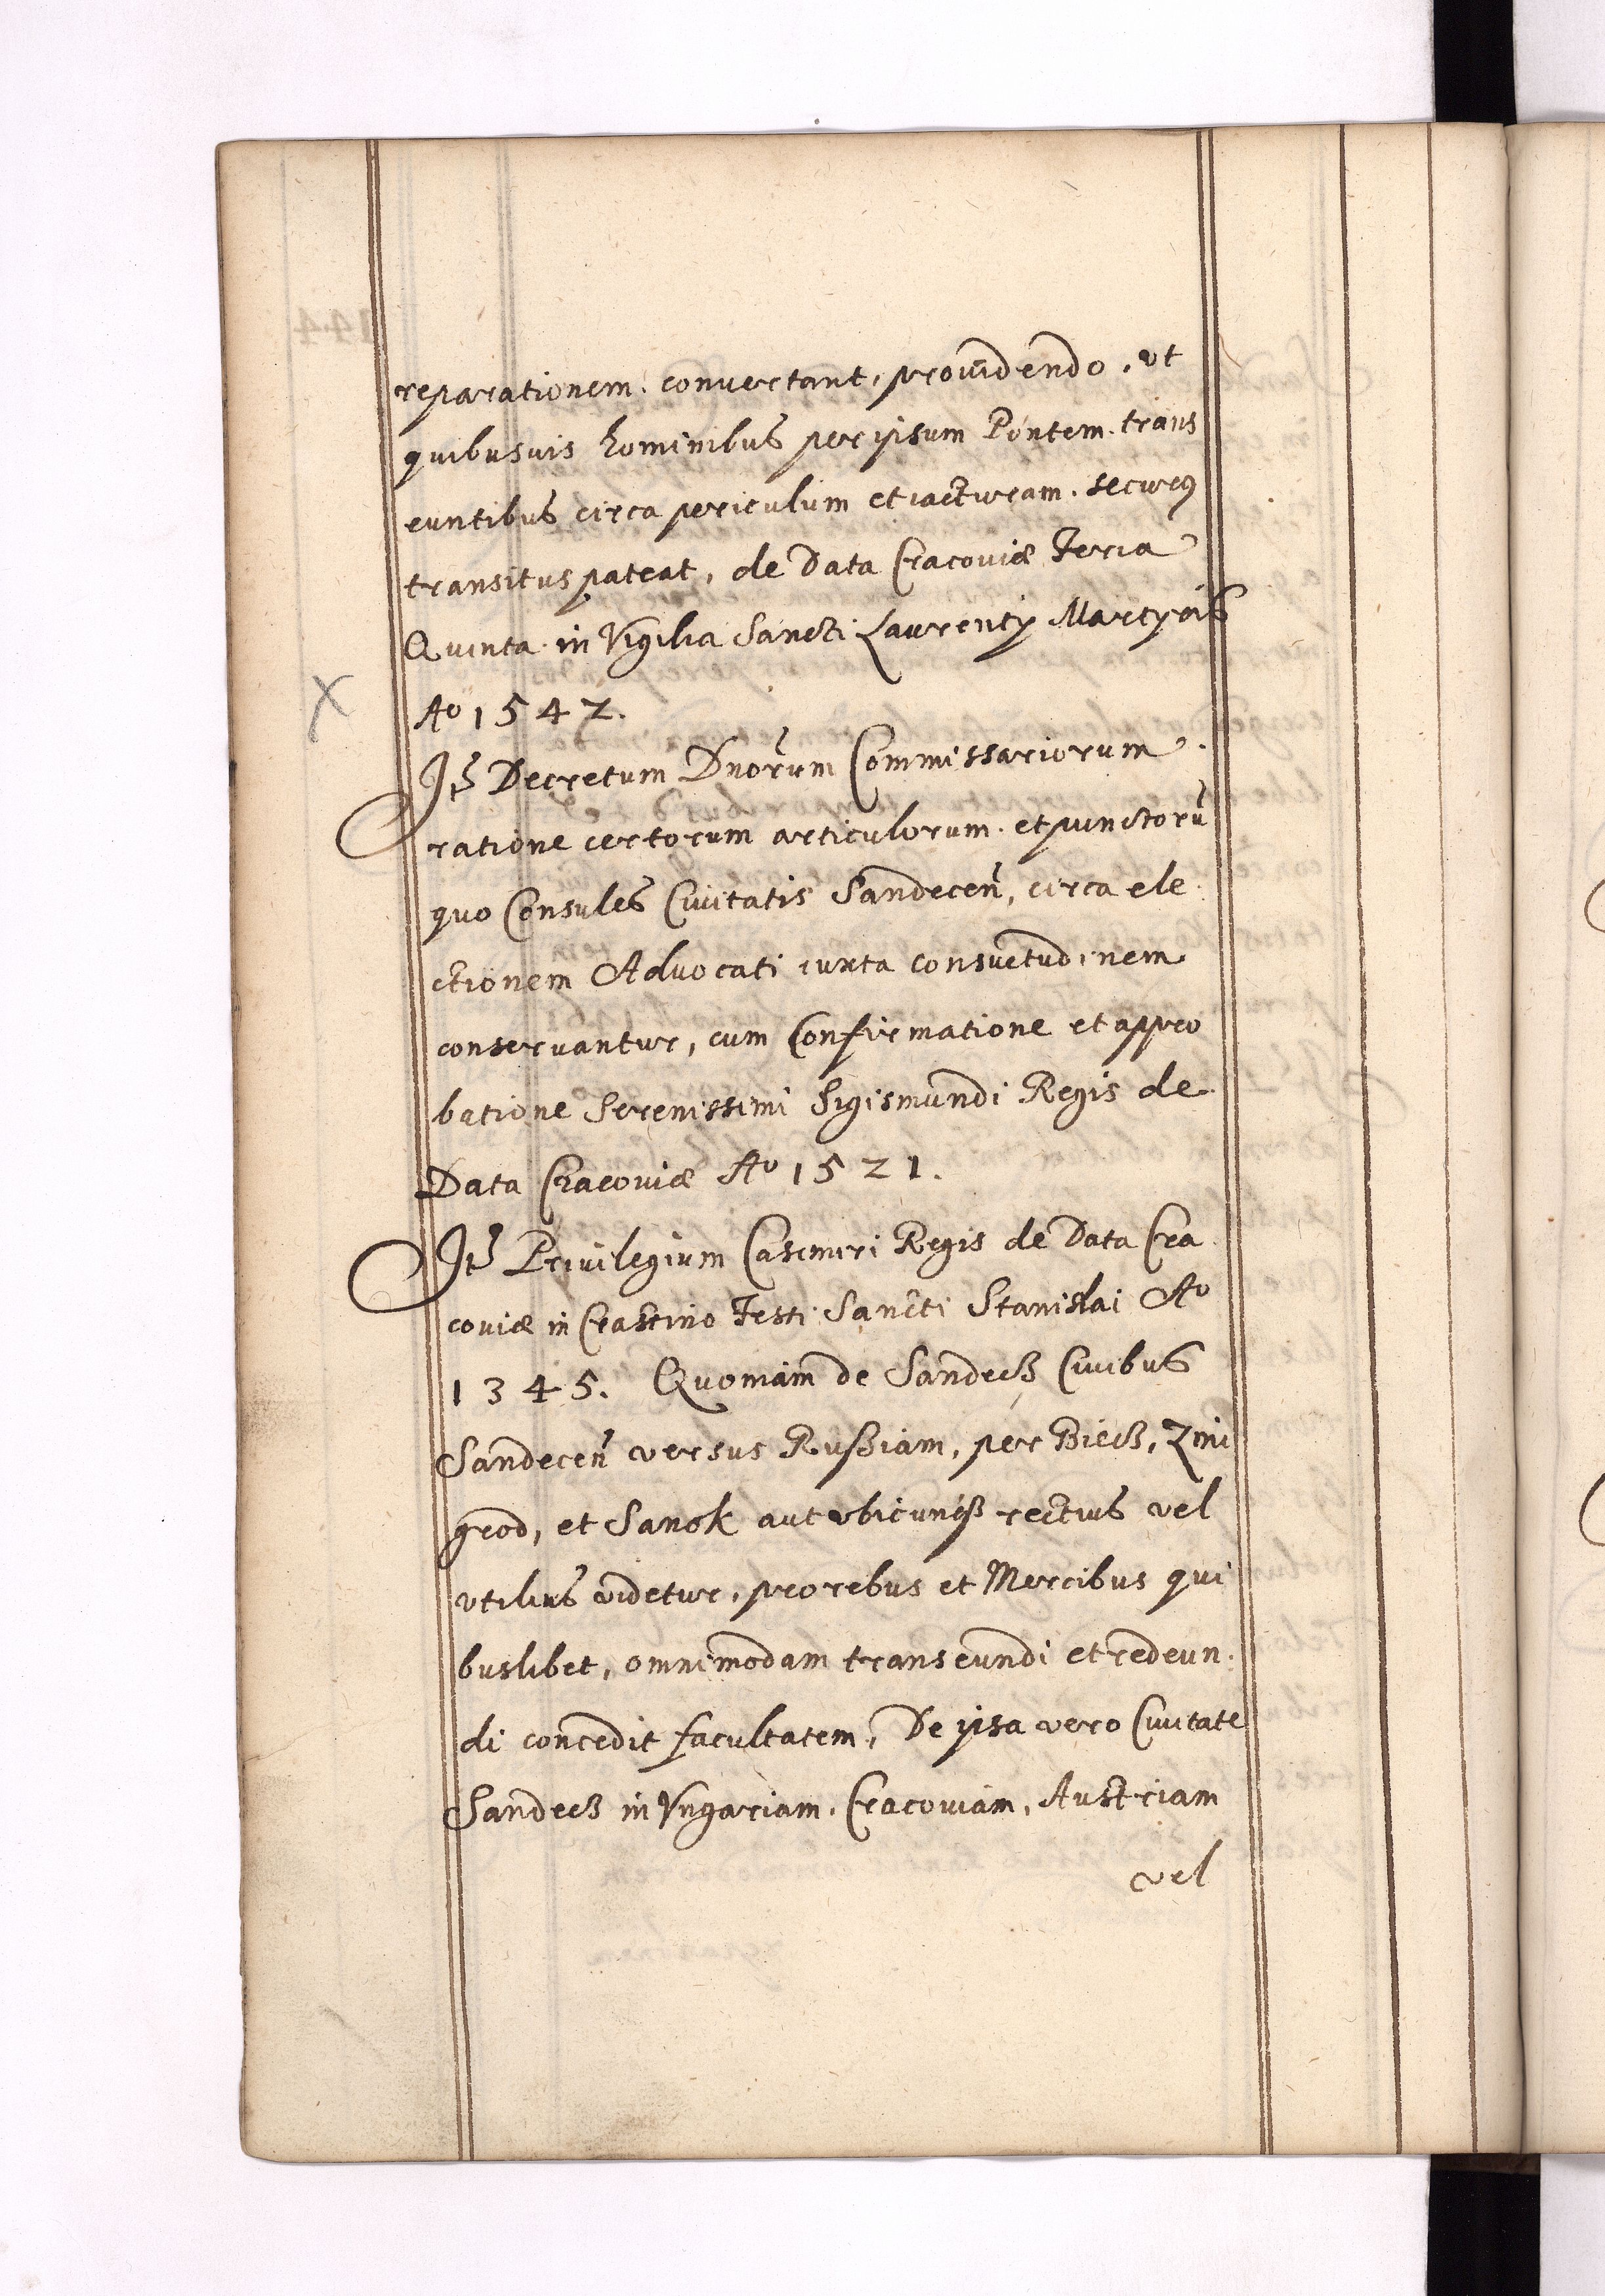 reparationem. convertant, providendo. vt
quibusuis hominibus per ipsum Pontem. trans
euntibus circa periculum et iacturam. securus
transitus pateat, de Data Cracoviæ Feria
Quinta in Vigilia Sancti Laurentÿ Martyris
Aº 1542.
Itẽ Decretum Dnorum Commissariorum
ratione certorum articulorum. et punctorũ
quo Consules Civitatis Sandecen, circa ele
ctionem Advocati iuxta consuetudinem
conservantur, cum Confirmatione et appro
batione Serenissimi Sigismundi Regis de
Data Cracoviæ Aº 1521.
Itẽ Privilegium Casimiri Regis de Data Cra
coviæ in Crastino Festi Sancti Stanislai Aº
1345. Quoniam de Sandecz Civibus
Sandecen versus Russiam, per Biecz, Zmi
grod, et Sanok aut vbicunq3 rectius vel
vtilius videtur, pro rebus et Mercibus qui
buslibet, omnimodam transeundi et redeun.
di concedit facultatem, De ipsa vero Civitate
Sandecz in Vngariam. Cracoviam, Austriam
vel